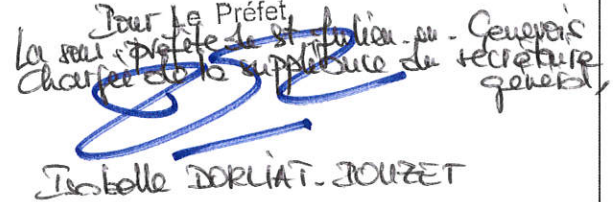 Pour Le Préfet,
La sous-préfète de St-Julien-en-Genevois
Chargée de la suppléance du secrétaire
général,
Isabelle DORLIAT-POUZET